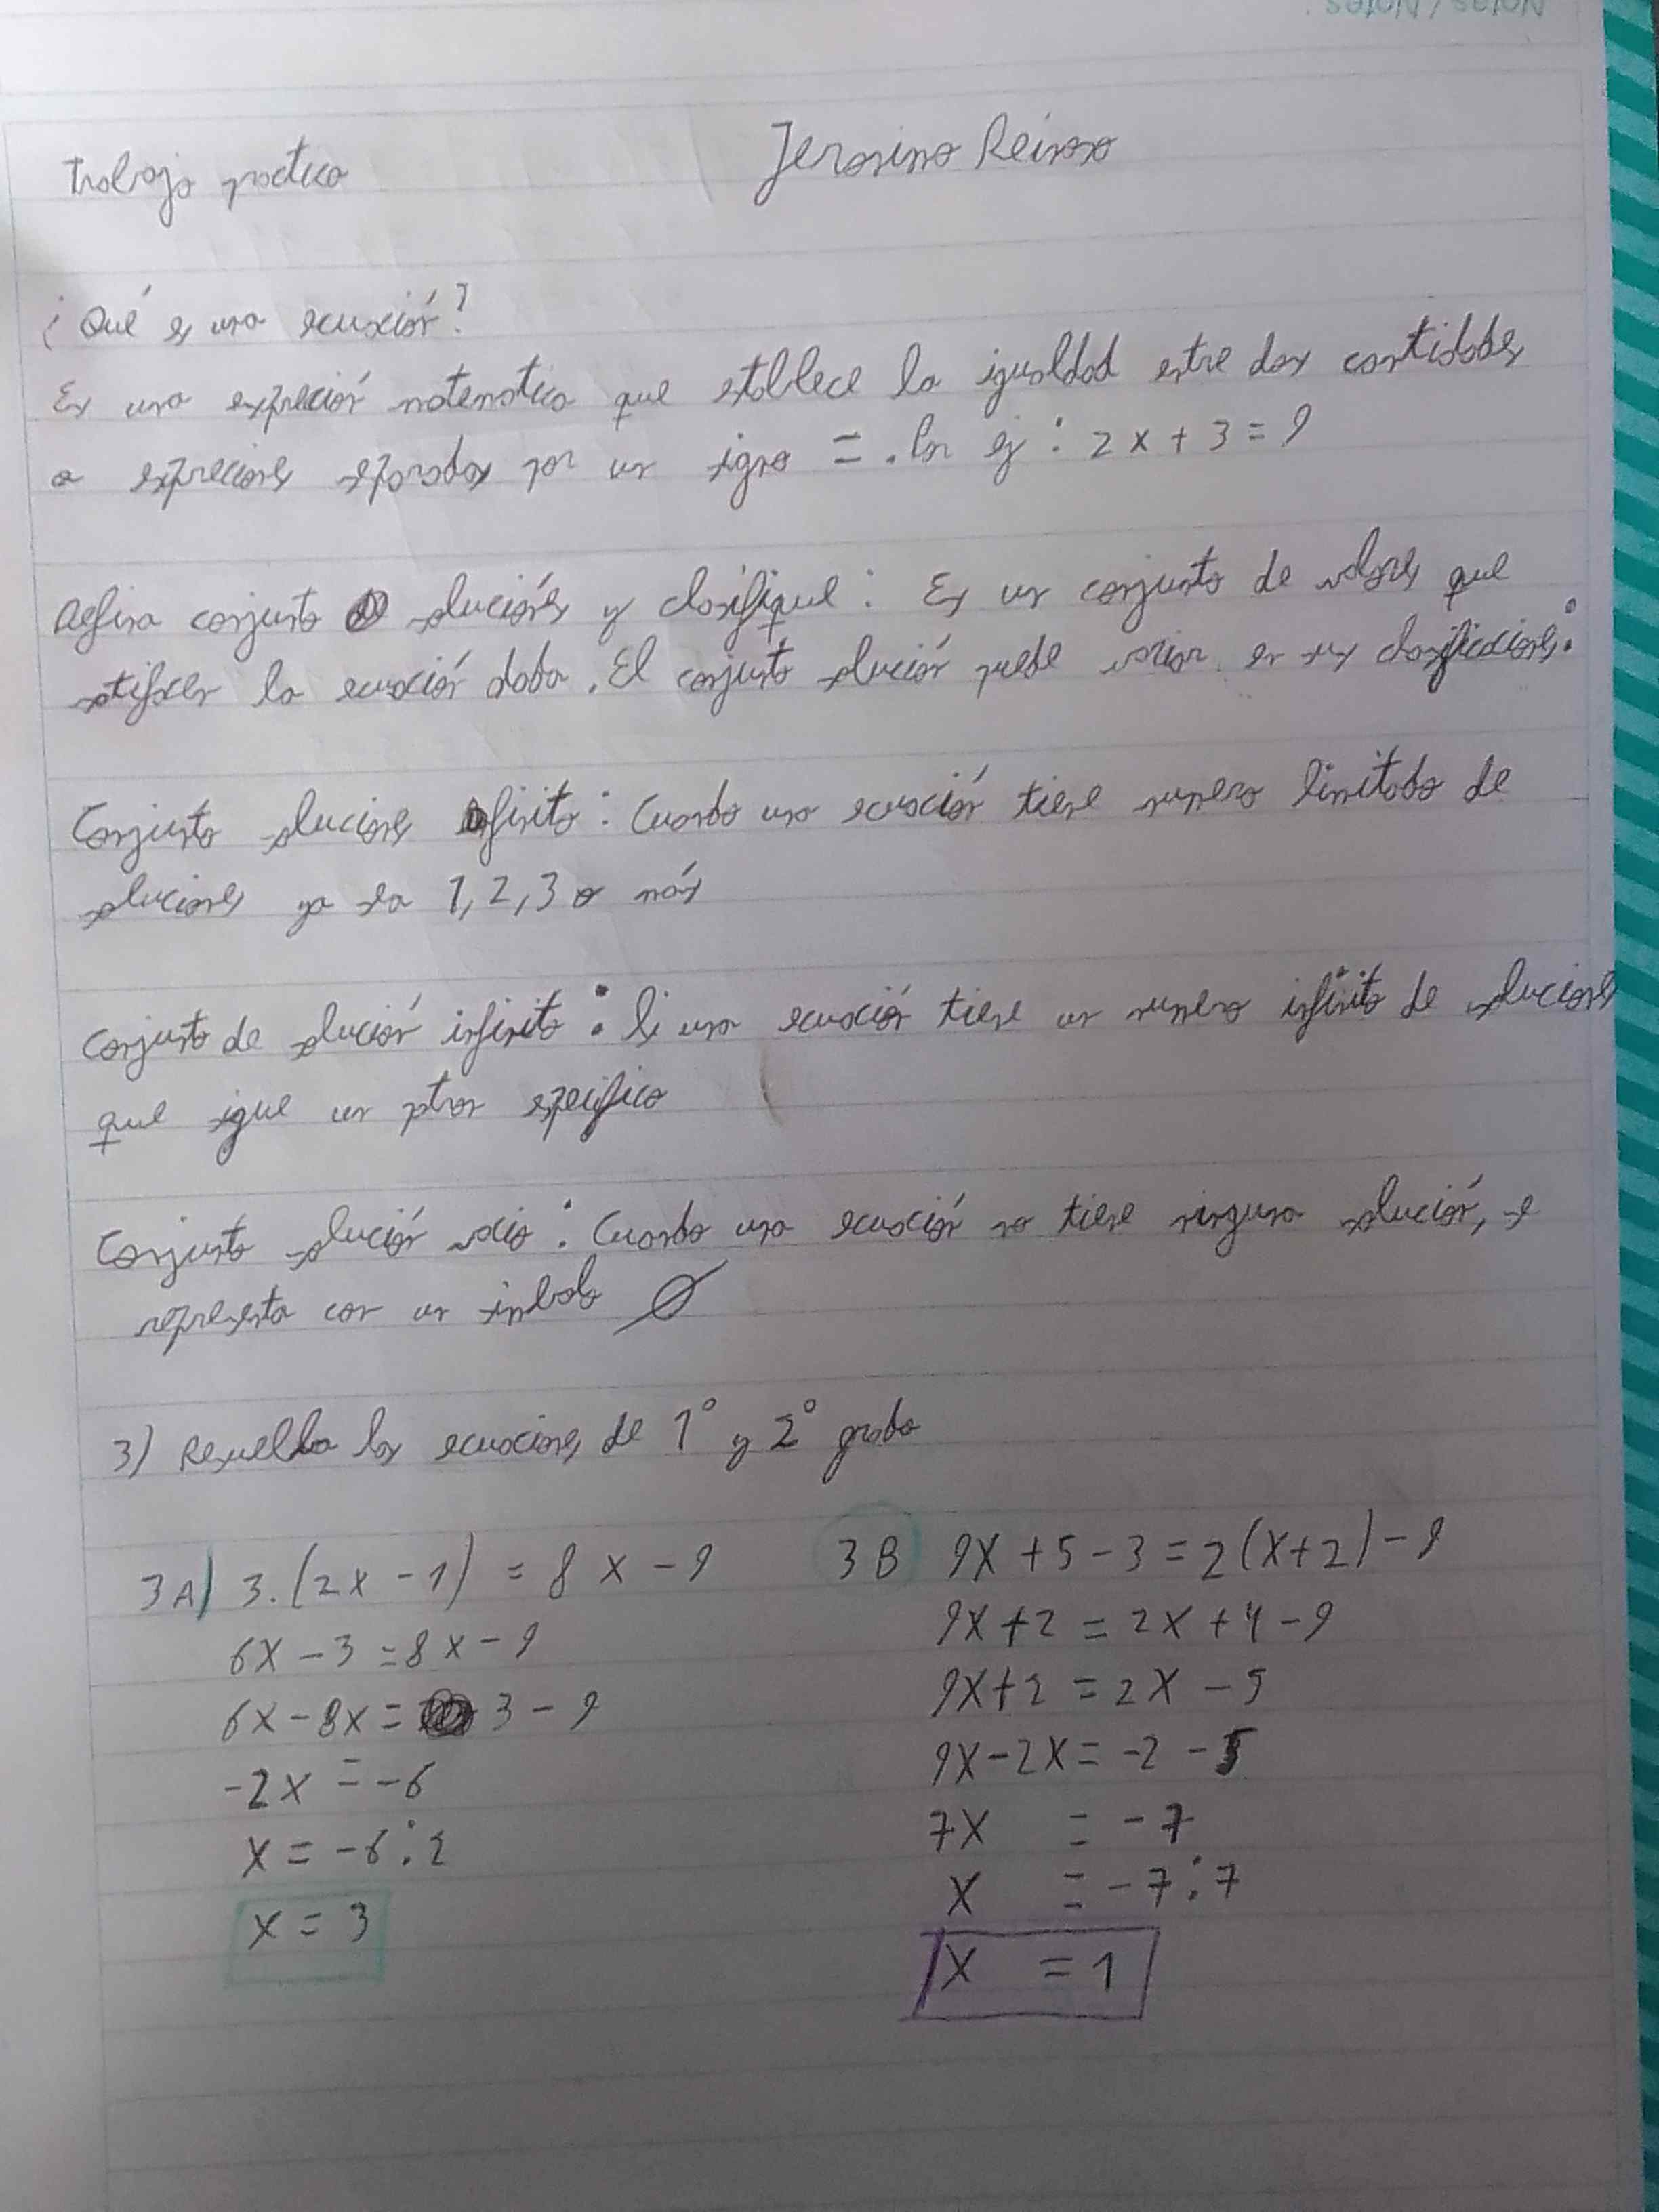 Notas / Notes:
Trabajo practico Jeronimo Reinoso
¿Qué es una ecuación?
Es una expreción matematica que establece la igualdad entre dos cantidades
o expreciones separadas por un signo = . Por ej : 2x + 3 = 9
Defina conjunto soluciónes y clasifique : Es un conjunto de valores que
satisfacen la ecuación dada. El conjunto solución puede variar en sus clasificaciones:
Conjunto soluciones finito : Cuando una ecuación tiene numero limitado de
soluciones ya sea 1, 2, 3 o más
Conjunto de solución infinito : Si una ecuación tiene un numero infinito de soluciones
que sigue un patron especifico
Conjunto solución vacio : Cuando una ecuación no tiene ninguna solución, se
representa con un simbolo Ø
3) Resuelba las ecuaciones de 1° y 2° grado
3A) 3.(2x - 1) = 8x - 9
6x - 3 = 8x - 9
6x - 8x = 3 - 9
-2x = -6
x = -6 : 2
x = 3
3B 9x + 5 - 3 = 2(x+2) - 9
9x + 2 = 2x + 4 - 9
9x + 2 = 2x - 5
9x - 2x = -2 - 5
7x = -7
x = -7 : 7
x = 1